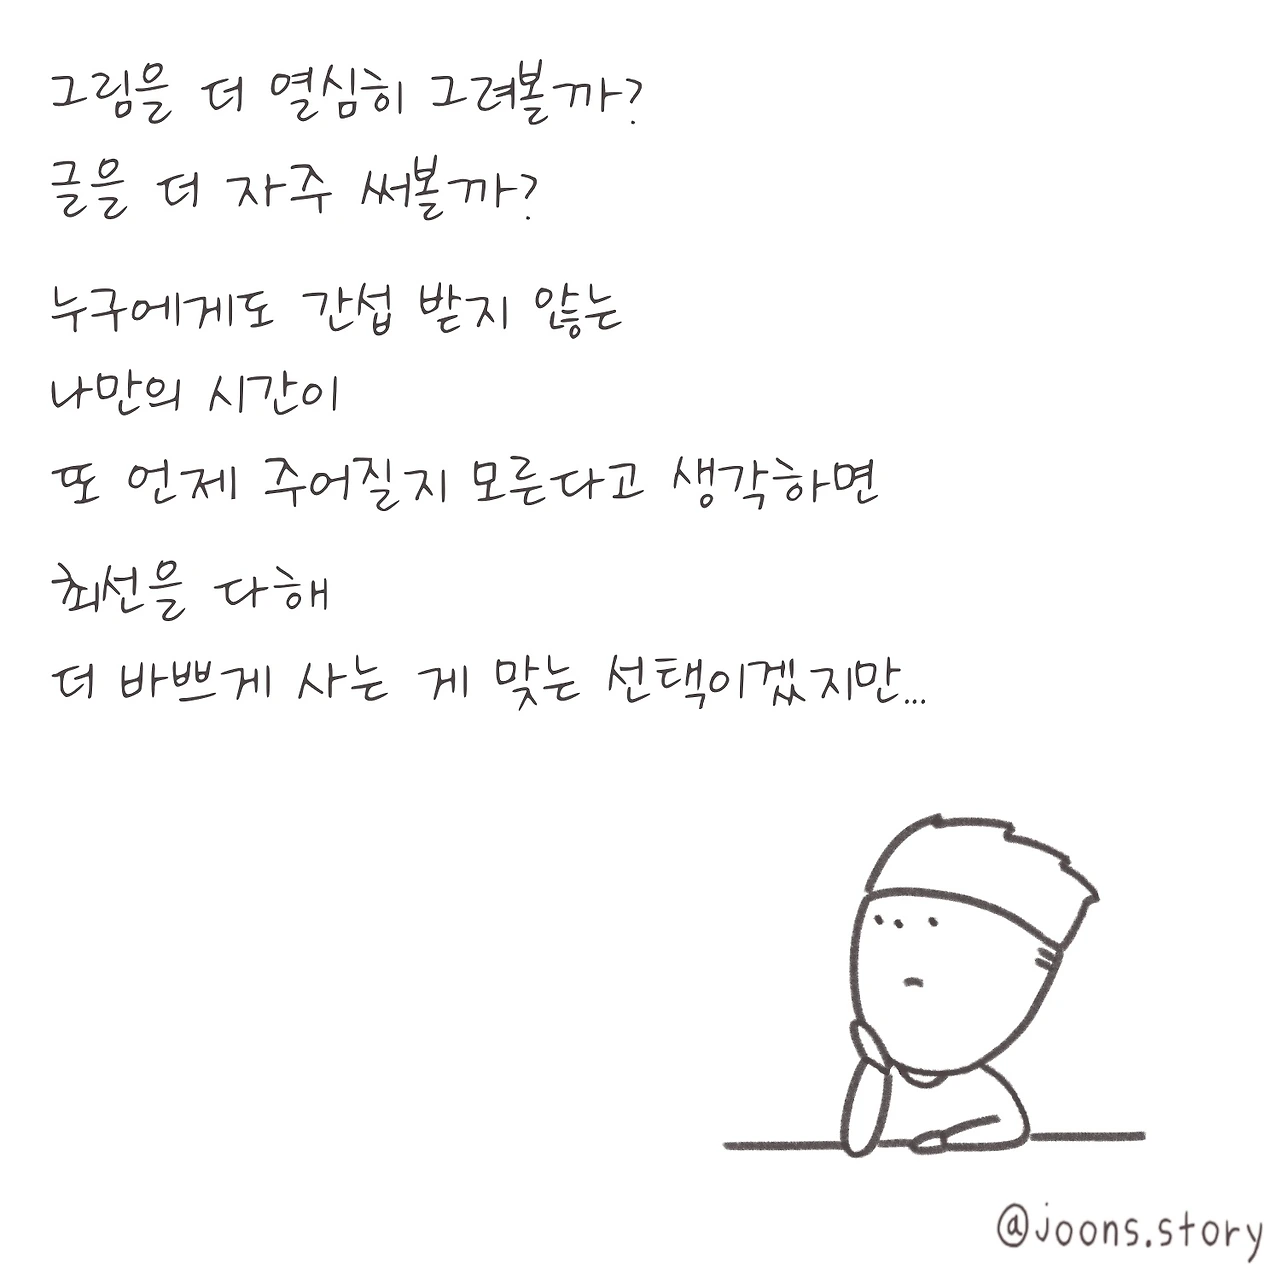 그림을 더 열심히 그려볼까?
글을 더 자주 써볼까?
누구에게도 간섭 받지 않는
나만의 시간이
또 언제 주어질지 모른다고 생각하면
최선을 다해
더 바쁘게 사는 게 맞는 선택이겠지만...
@joons.story